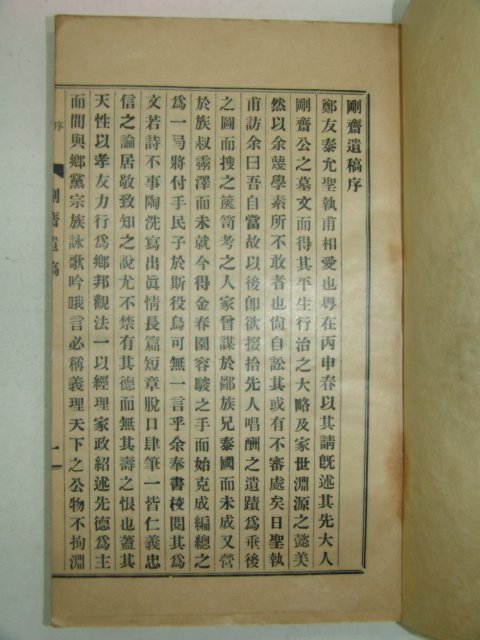 剛齋遺稿序
鄭友泰允聖執甫相愛也粤在丙申春以其請旣述其先大人
剛齋公之墓文而得其平生行治之大略及家世淵源之懿美
然以余蔑學素所不敢者也尙自訟其或有不審處矣日聖執
甫訪余曰吾自當故以後卽欲掇拾先人唱酬之遺蹟爲垂後
之圖而搜之篋笥考之人家曾謀於鄙族兄泰國而未成又營
於族叔霽澤而未就今得金春園容駿之手而始克成編總之
爲一弓將付手民子於斯役烏可無一言乎余奉書棱閱其爲
文若詩不事陶洗寫出眞情長篇短章脫口肆筆一皆仁義忠
信之論居敬致知之說尤不禁有其德而無其壽之恨也蓋其
天性以孝友力行爲鄕邦觀法一以經理家政紹述先德爲主
而間與鄕黨宗族詠歌吟哦言必稱義理天下之公物不拘淵
序
剛齋遺稿
一